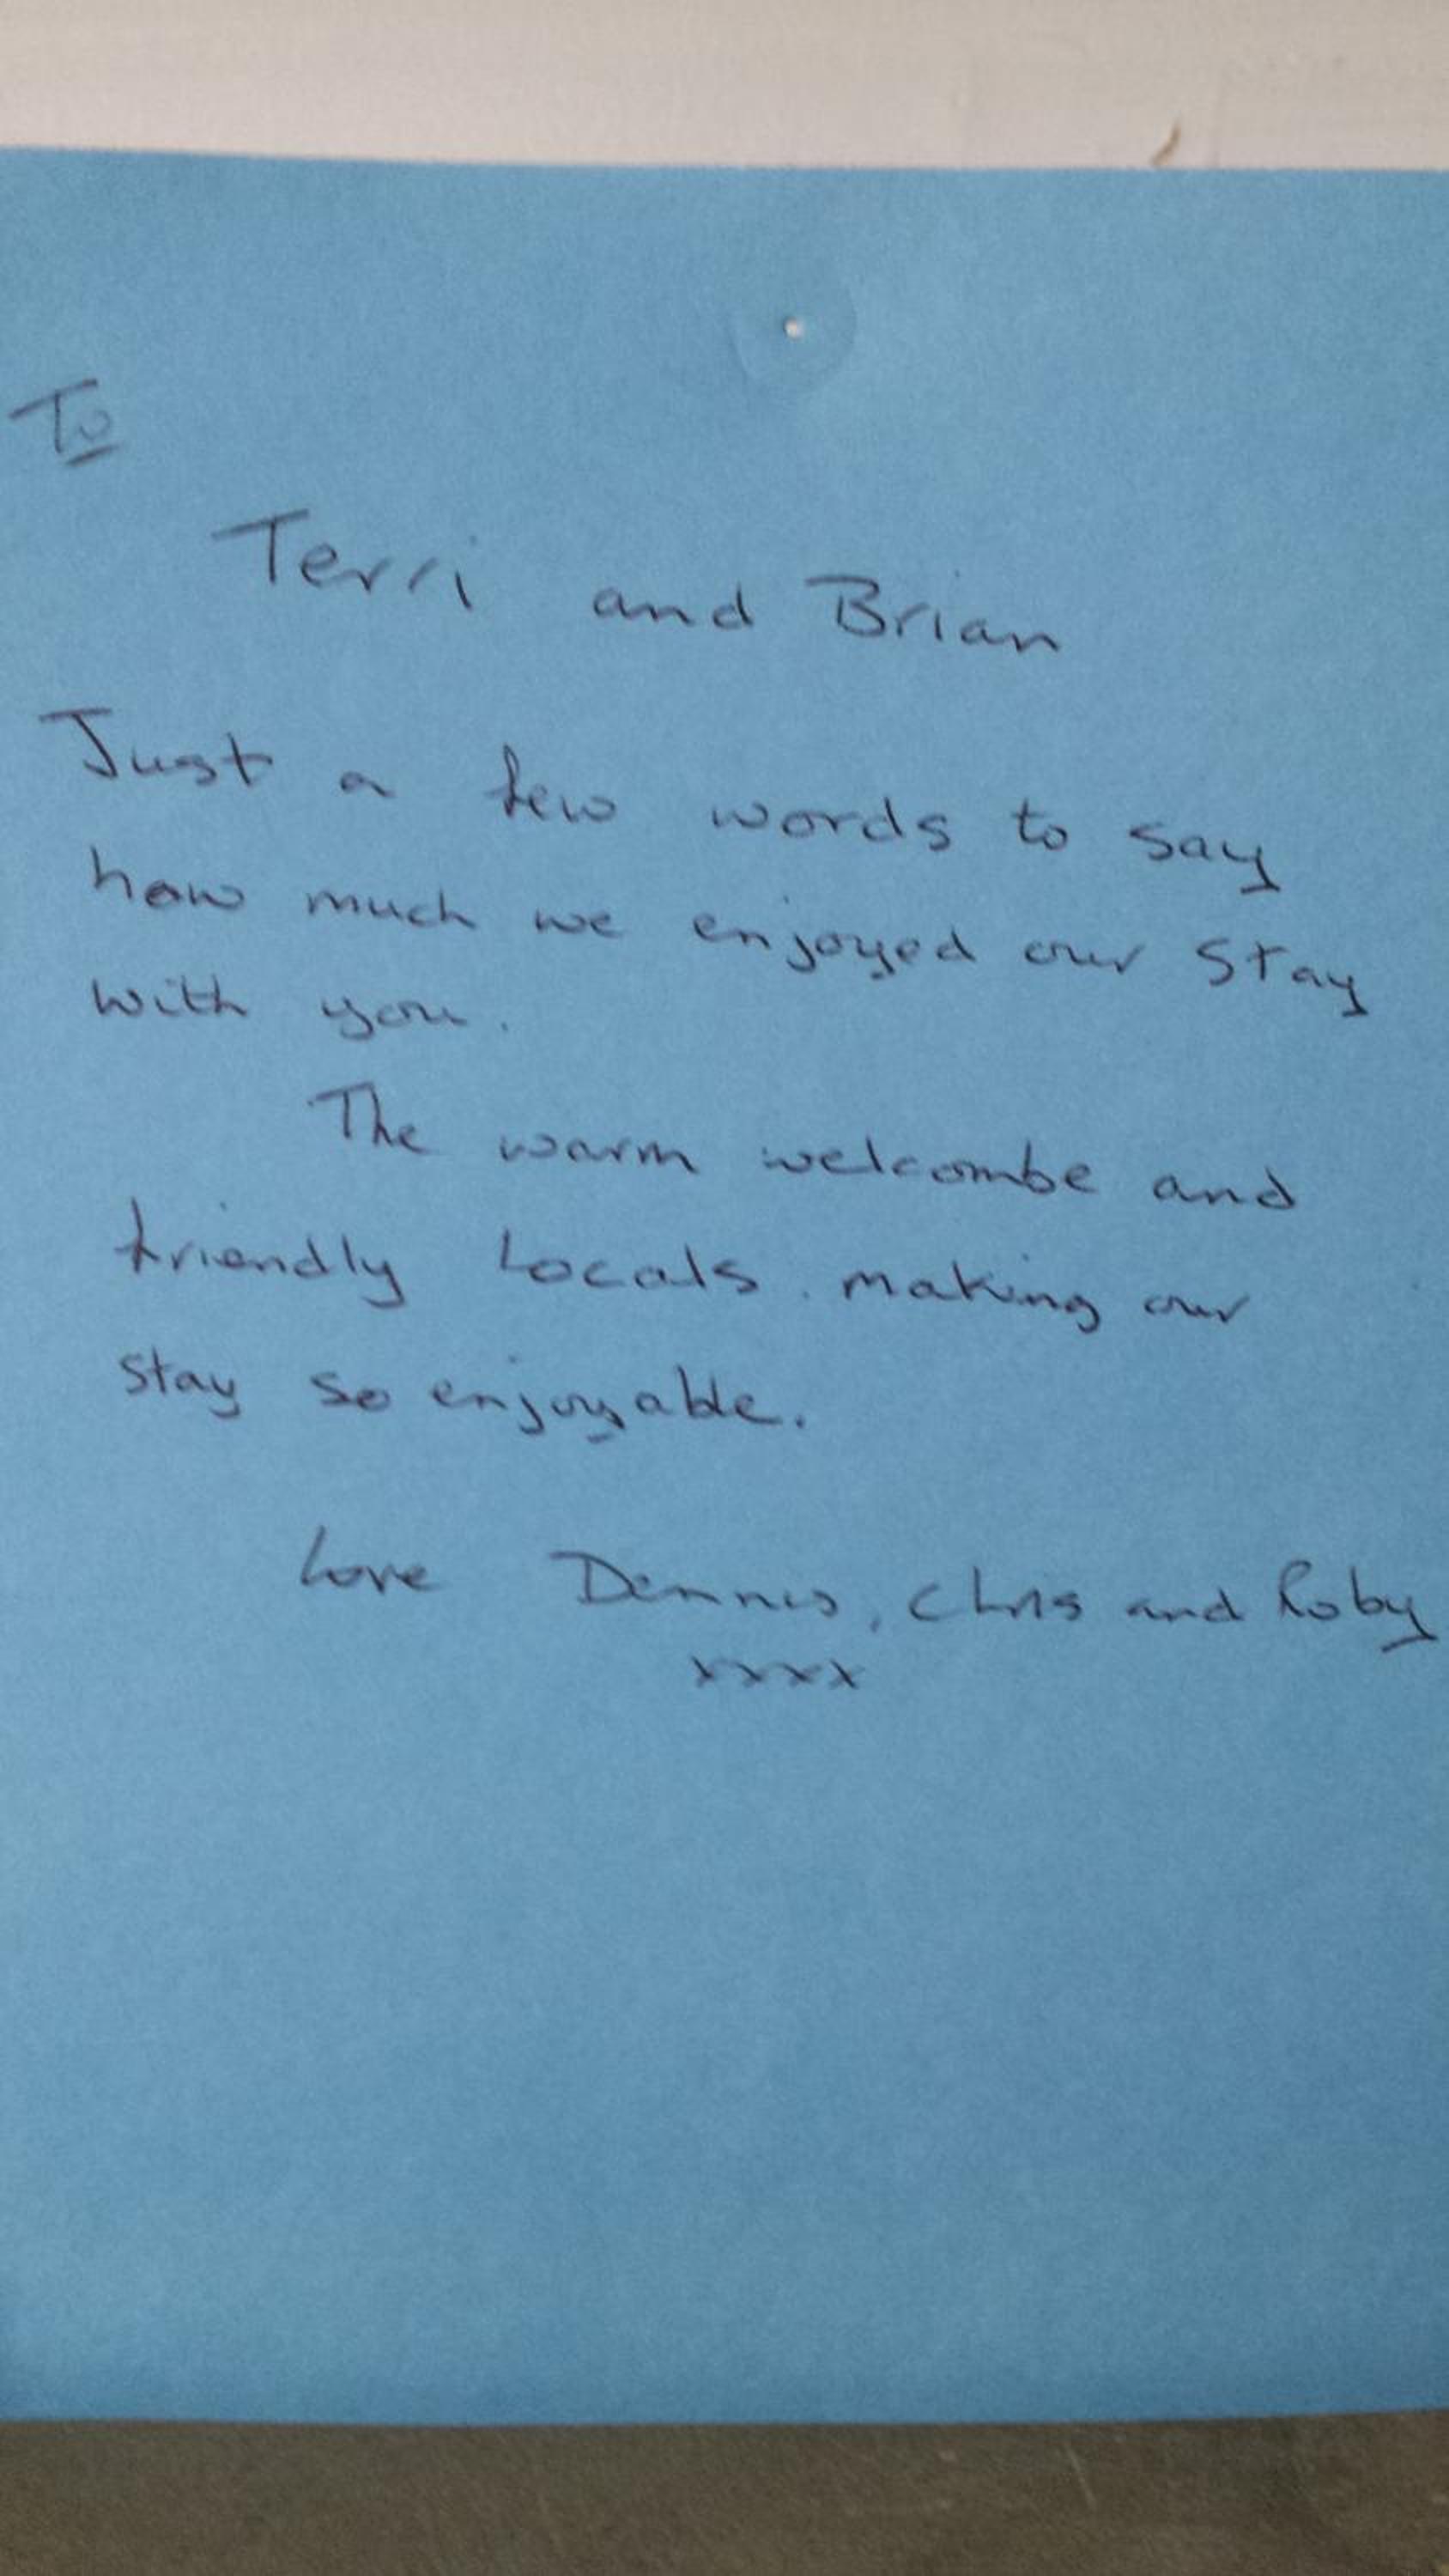 To
Terri and Brian
Just a few words to say
how much we enjoyed our stay
with you.
The warm welcombe and
friendly Locals. making our
stay so enjoyable.
Love Dennis, Chris and Roby
xxxx